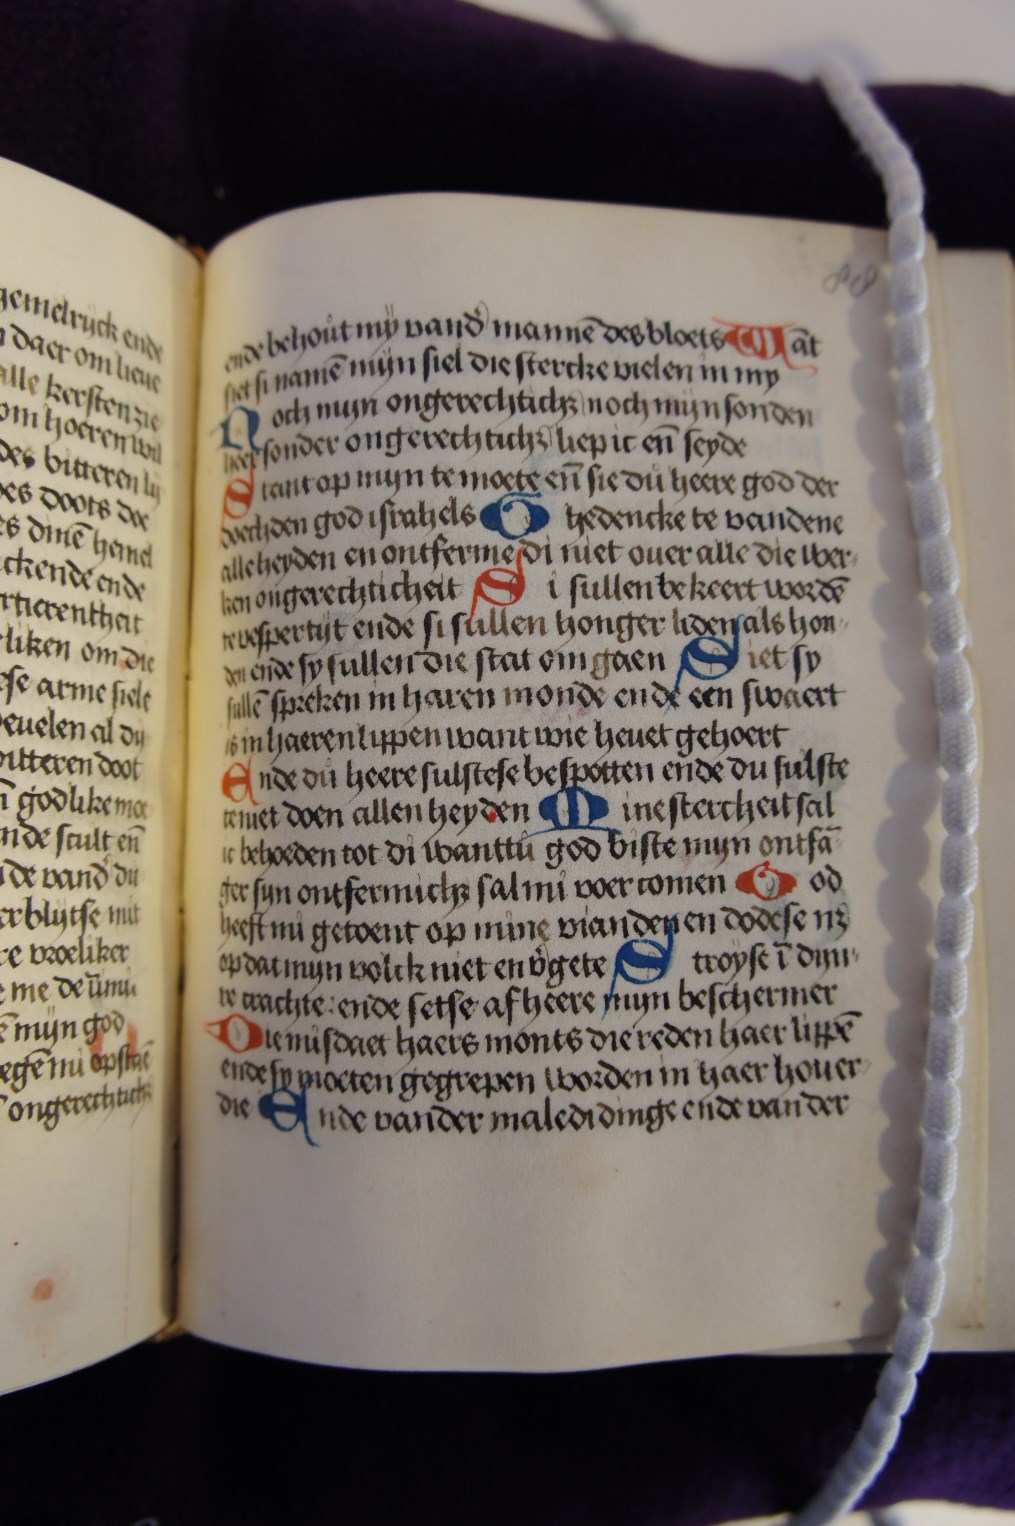 gemelrijck ende
daer om lieue
alle kersten zie
om hoeren wil
des bitteren lij
des doots die
ckende ende
rtierentheit
liken om die
se arme siele
euelen al dij
bitteren doot
godlike moe
nde scult en̄
de vand̕ dij
rblijtse mit
re vroeliker
ē mijn god
egē mi opstaē
ongerechtich
88
ende behout my vand̕ mannē des bloets Wāt
siet si namē mijn siel die stercke vielen in my
Noch mijn ongerechtichꝫ noch mijn sonden
heer sonder ongerechtichꝫ liep ic en̄ seyde
Stant op mijn te moete en̄ sie dū heere god der
doechden god israhels Ghedencke te vandene
alle heyden en ontferme di niet ouer alle die wer
ken ongerechticheit Si sullen bekeert wordē
te vespertijt ende si sullen honger liden als hon
den ende sy sullen die stat om gaen Siet sy
sullē spreken in haren monde ende een swaert
is in haeren lippen want wie heuet gehoert
Ende dū heere sulstese bespotten ende du sulste
te niet doen allen heyden Mine stercheit sal
ic behoeden tot di want tū god biste mijn ontfā
ger sijn ontfermichꝫ sal mi voer comen God
heeft mi getoent op mine vianden en dodese nꝫ
op dat mijn volck niet en v̕gete Stroyse ī dijn
re crachte ende setse af heere mijn beschermer
Die misdaet haers monts die reden haer lippē
ende sy moeten gegrepen worden in haer houer
die Ende vander maledidinge ende van der